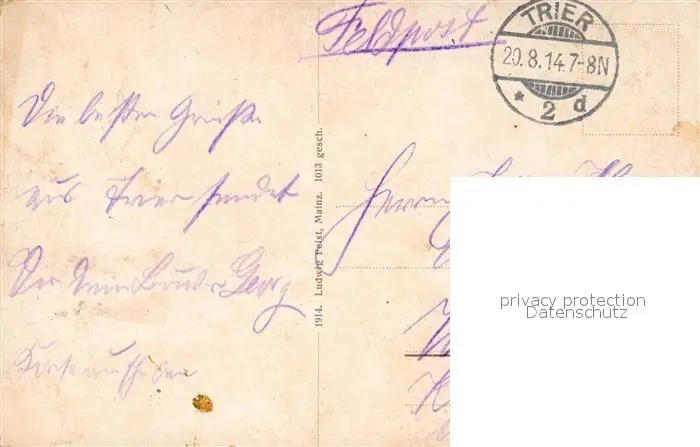 Feldpost
TRIER
20.8.14.7-8N
* 2 d
Die besten Grüße
aus Trier sendet
Dir Dein Bruder Georg
Karte aufheben
1914. Ludwig Feist, Mainz. 1013 gesch.
Herrn
privacy protection
Datenschutz